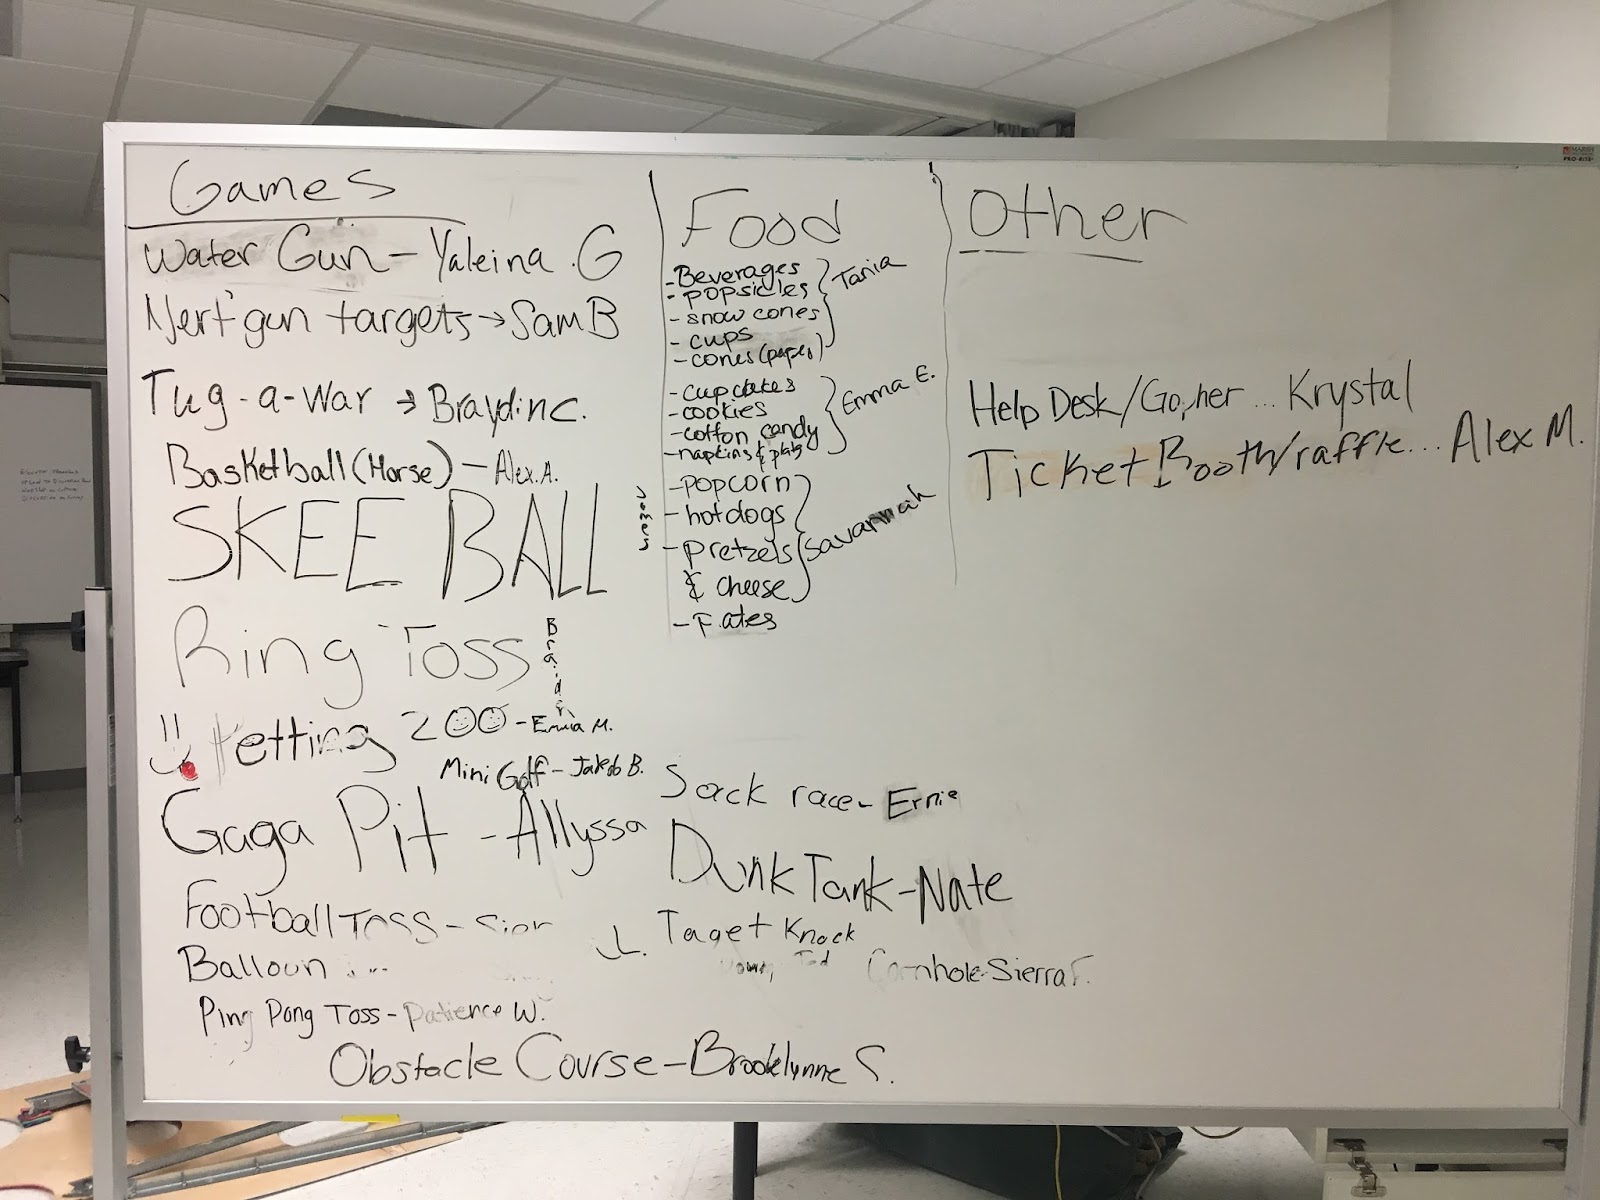 Games
Water Gun - Yaleina .G
Nerf gun targets → Sam B
Tug-a-War → Braydin C.
Basketball (Horse) - Alex.A.
SKEE BALL
Ring Toss
Petting Z☺☺ - Emma M.
Mini Golf - Jakob B.
Gaga Pit - Allyssa
Football Toss -
Balloon
Ping Pong Toss - Patience W.
Obstacle Course - Brooklynne S.
Food
- Beverages
- popsicles
- snow cones
- cups
- cones (paper)
Tania
- cupcakes
- cookies
- cotton candy
- napkins & plates
Emma E.
- popcorn
- hotdogs
- pretzels
& cheese
Savannah
Sack race - Ernie
Dunk Tank - Nate
Taget Knock
Cornhole - Sierra F.
Other
Help Desk/Gopher ... Krystal
Ticket Booth/raffle... Alex M.